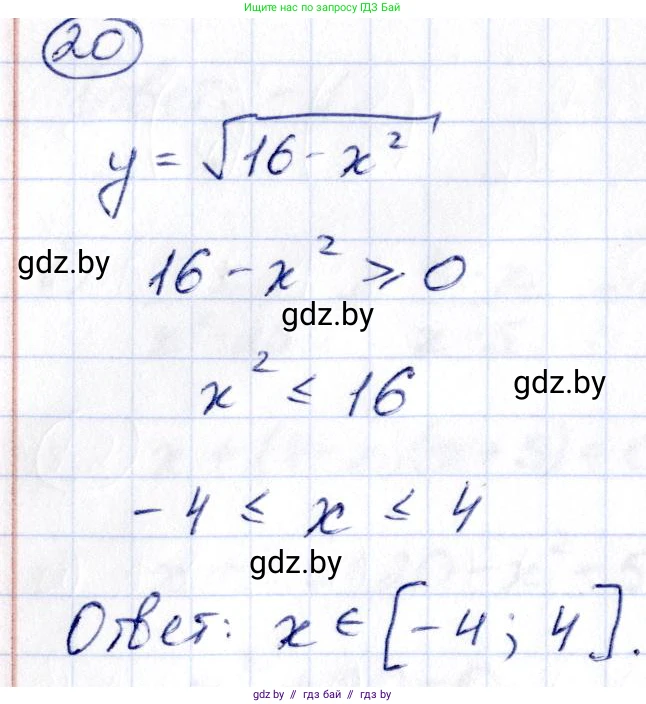 Ищите нас по запросу ГДЗ Бай
20
y = √16 - x²
gdz.by
16 - x² ⩾ 0
gdz.by
x² ≤ 16
gdz.by
-4 ≤ x ≤ 4
gdz.by
Ответ: x ∈ [-4; 4].
gdz by // гдз бай // gdz by